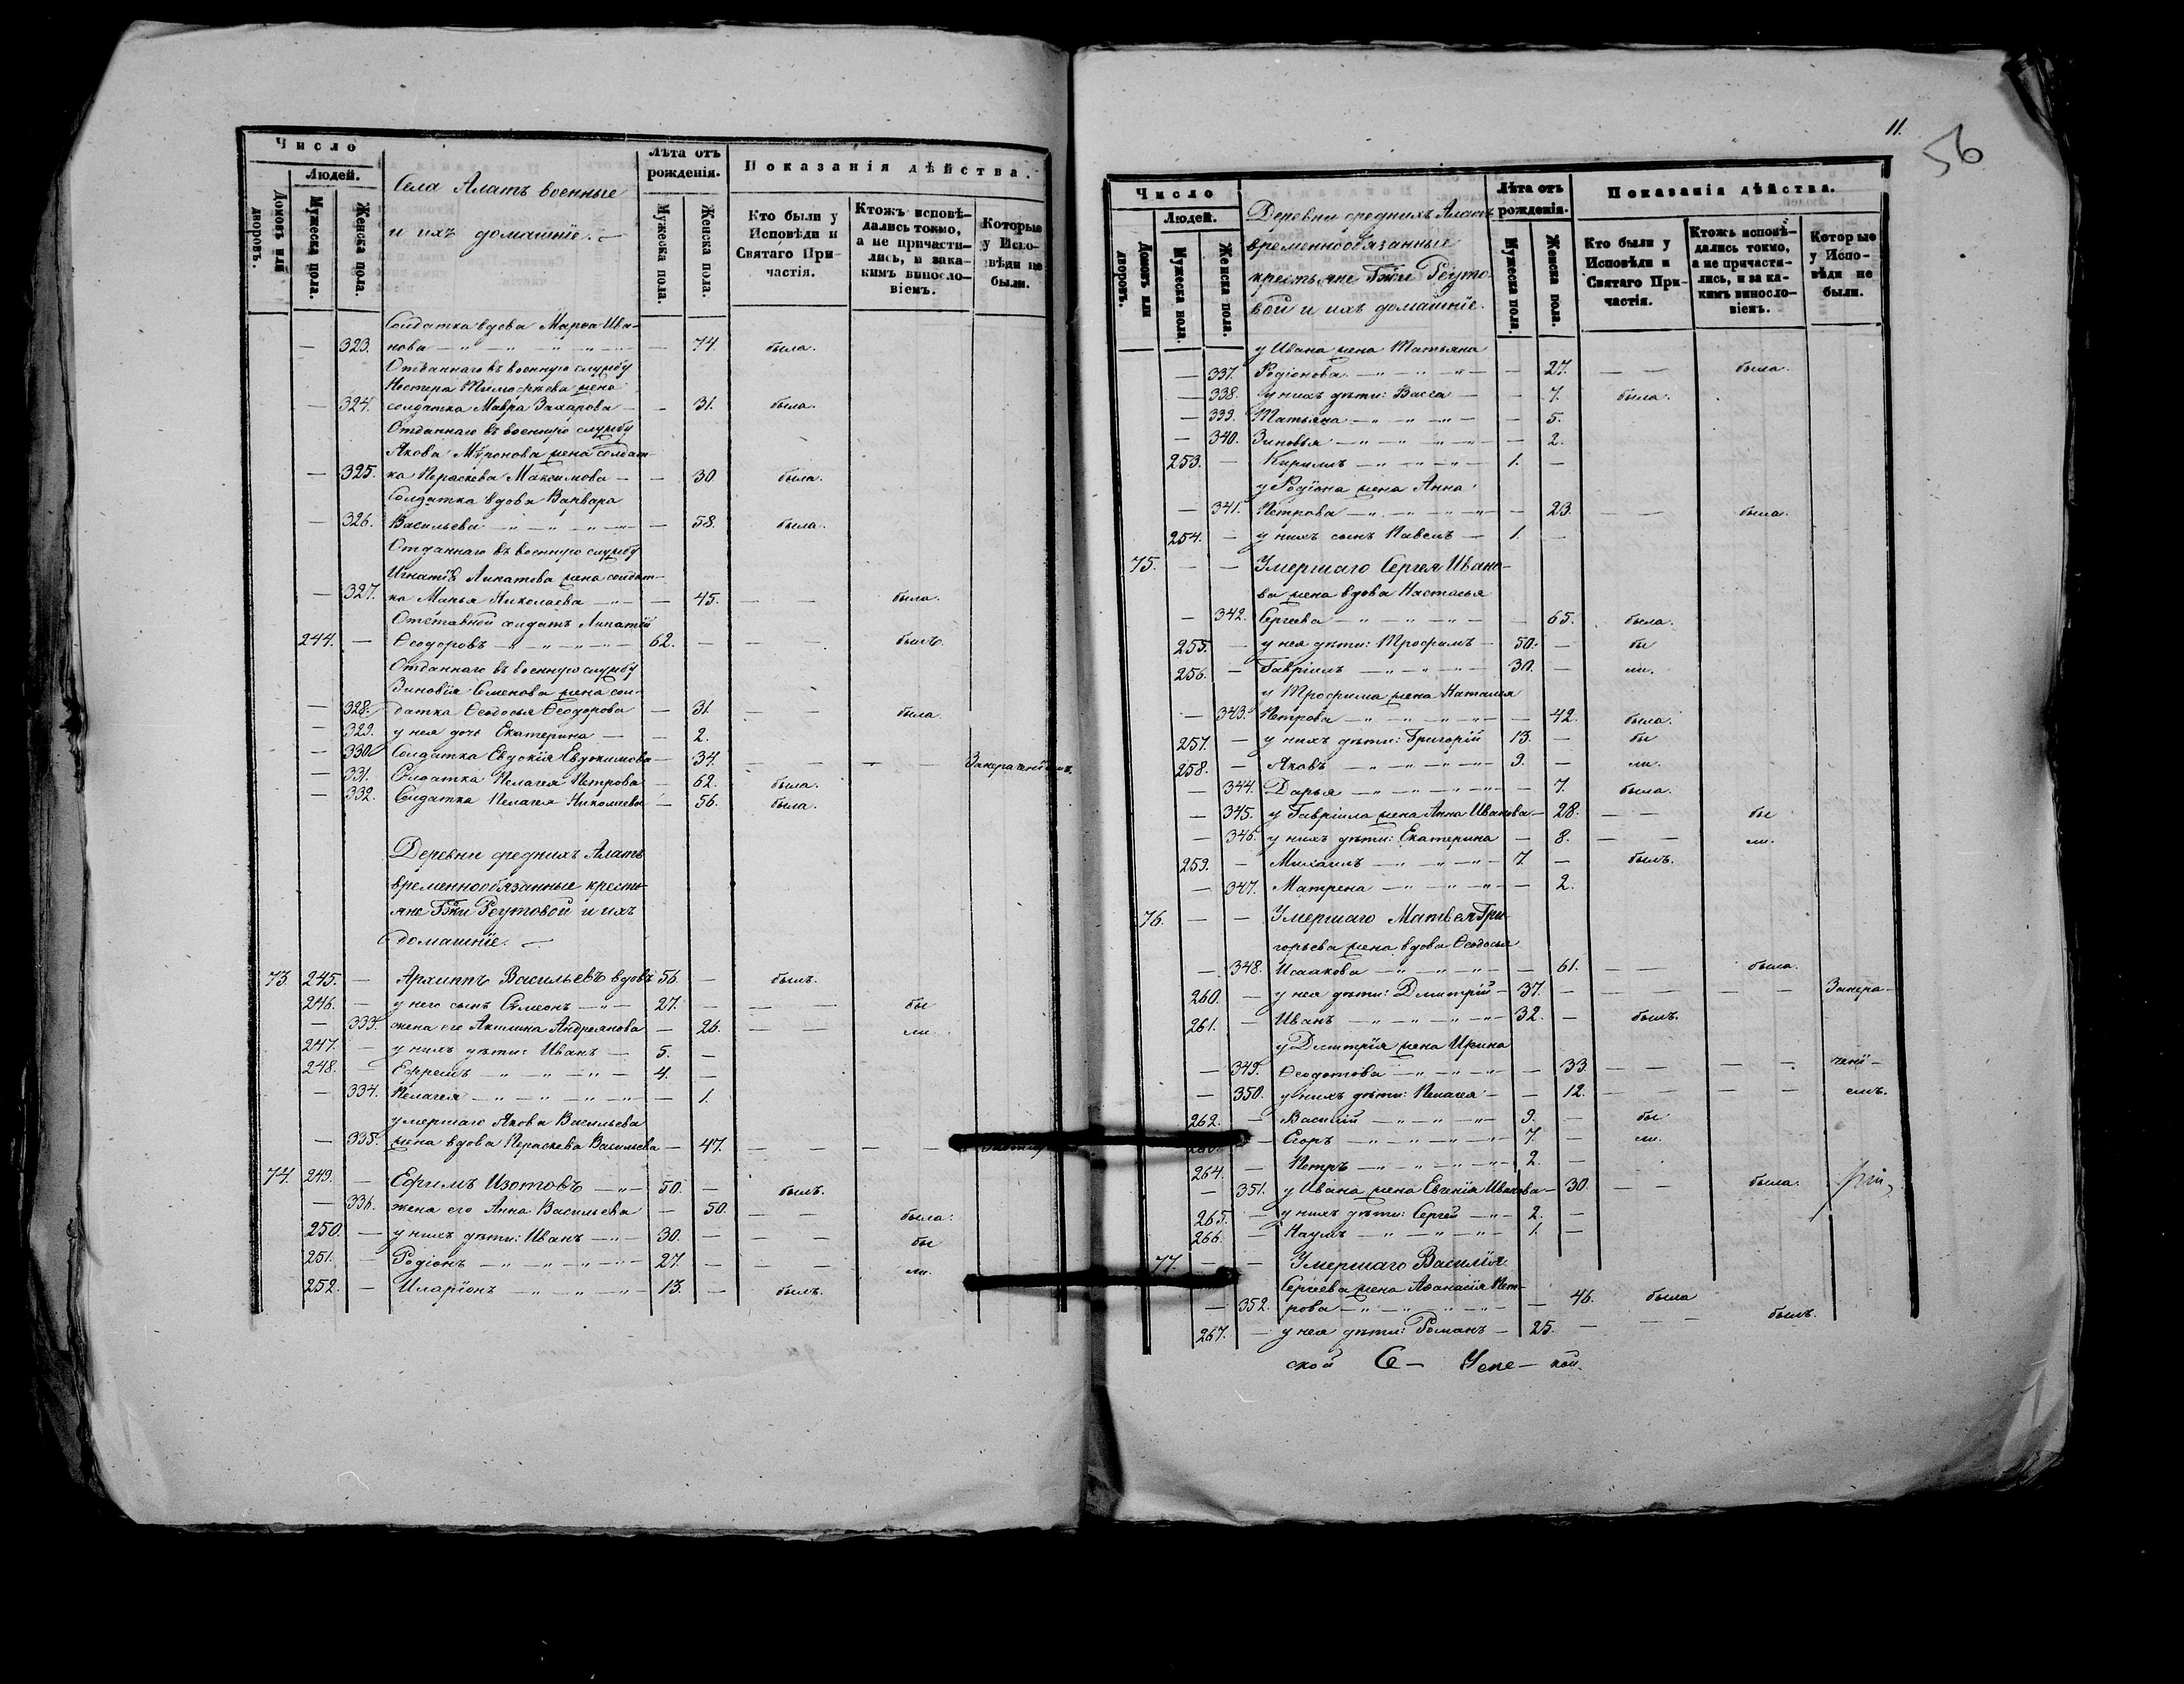 Число
Людей.
Домовъ или дворовъ.
Мужеска пола.
Женска пола.
Села Алатъ военные
и ихъ домашніе. —
Лѣта отъ рожденія.
Мужеска пола.
Женска пола.
Показанія дѣйства.
Кто были у Исповѣди и Святаго Причастія.
Ктожъ исповѣдались токмо, а не причастились, и за какимъ винословіемъ.
Которые у Исповѣди не были.
Солдатка вдова Марѳа Ива-
— 323. нова — — 74. была.
Отданнаго въ военную службу
Нестера Тимоѳеева жена
— 324. солдатка Мавра Захарова — — 31. была.
Отданнаго въ военную службу
Якова Мѵронова жена солдат-
— 325. ка Параскева Максимова — — 30. была.
Солдатка вдова Варвара
— 326. Васильева — — 58. была.
Отданнаго въ военную службу
Игнатія Липатова жена солдат-
— 327. ка Марья Николаева — — 45. — — была.
Отставной солдатъ Липатій
244. — Ѳеодоровъ — 62. — — — былъ.
Отданнаго въ военную службу
Зиновія Семенова жена сол-
— 328. датка Ѳеодосья Ѳеодорова — 31. — — была.
— 329. у нея дочь Екатерина — — 2.
— 330. Солдатка Евдокія Евдокимова — 34. — — — — Занерачніемъ.
— 331. Солдатка Пелагея Петрова — 62. была.
— 332. Солдатка Пелагея Николаева — 56. была.
Деревни среднихъ Алатъ
временнообязанные кресть-
яне Гжи Реутовой и ихъ
домашніе. —
73. 245. — Архиппъ Васильевъ вдовъ 56. — былъ.
246. — у него сынъ Сѵмеонъ — 27. — — бы
— 333. жена его Акилина Андреянова — 26. — — ли.
247. — у нихъ дѣти: Иванъ — 5. —
248. — Ефремъ — 4. —
— 334. Пелагея — — 1.
умершаго Якова Васильева
— 335. жена вдова Параскева Васильева — 47. — — — —
74. 249. — Ефимъ Изотовъ — 50. — былъ.
— 336. жена его Анна Васильева — 50. — — была.
250. — у нихъ дѣти: Иванъ — 30. — — — бы
251. — Родіонъ — 27. — — — ли.
252. — Иларіонъ — 13. — былъ.
11.
56
Число
Людей.
Домовъ или дворовъ.
Мужеска пола.
Женска пола.
Деревни среднихъ Алатъ
временнообязанные
крестьяне Гжи Реуто-
вой и ихъ домашніе.
Лѣта отъ рожденія.
Мужеска пола.
Женска пола.
Показанія дѣйства.
Кто были у Исповѣди и Святаго Причастія.
Ктожъ исповѣдались токмо, а не причастились, и за какимъ винословіемъ.
Которые у Исповѣди не были.
у Ивана жена Татьяна
— 337. Родіонова — — 27. — — была.
— 338. у нихъ дѣти: Васса — — 7. была.
— 339. Татьяна — — 5.
— 340. Зиновья — — 2.
253. — Кириллъ — 1. —
у Родіона жена Анна
— 341. Петрова — — 23. — — была.
254. — у нихъ сынъ Павелъ — 1. —
75. — — Умершаго Сергея Ивано-
ва жена вдова Настасья
— 342. Сергеева — — 65. была.
255. — у нея дѣти: Трофимъ — 50. — бы
256. — Гавріилъ — 30. — ли.
у Трофима жена Наталья
— 343. Петрова — — 42. была.
257. — у нихъ дѣти: Григорій 13. — бы
258. — Яковъ — 9. — ли.
— 344. Дарья — — 7. была.
— 345. у Гавріила жена Анна Иванова — 28. — — бы
— 346. у нихъ дѣти: Екатерина — 8. — — ли.
259. — Михаилъ — 7. — былъ.
— 347. Матрена — — 2.
76. — — Умершаго Матвея Гри-
горьева жена вдова Ѳеодосья
— 348. Исаакова — — 61. — — была.
260. — у нея дѣти: Дмитрій — 37. — — — — — Занера-
261. — Иванъ — 32. — былъ.
у Дмитрія жена Ирина
— 349. Ѳеодотова — — 33. — — — — чені-
— 350. у нихъ дѣти: Пелагея — — 12. — — — — емъ.
262. — Василій — 9. — бы
— Егоръ — 7. — ли.
264. — Петръ — 2. —
— 351. у Ивана жена Евгенія Иванова — 30. — — была.
265. — у нихъ дѣти: Сергей — 2. —
266. — Наумъ — 1. —
77. — — Умершаго Василія
Сергеева жена Аѳанасія Пет-
— 352. рова — — 46. была
267. — у нея дѣти: Романъ — 25. — — — былъ.
ской Се — Успе — кой.